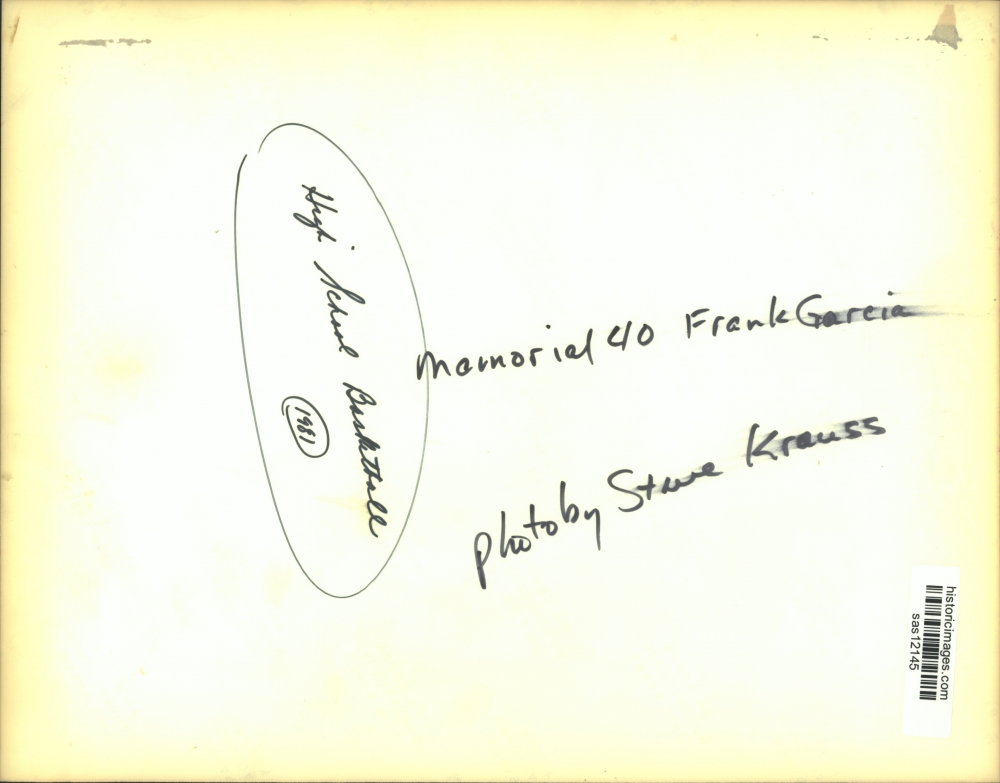 High School Basketball
1981
Memorial 40 Frank Garcia
photo by Steve Krauss
historicimages.com
sas12145